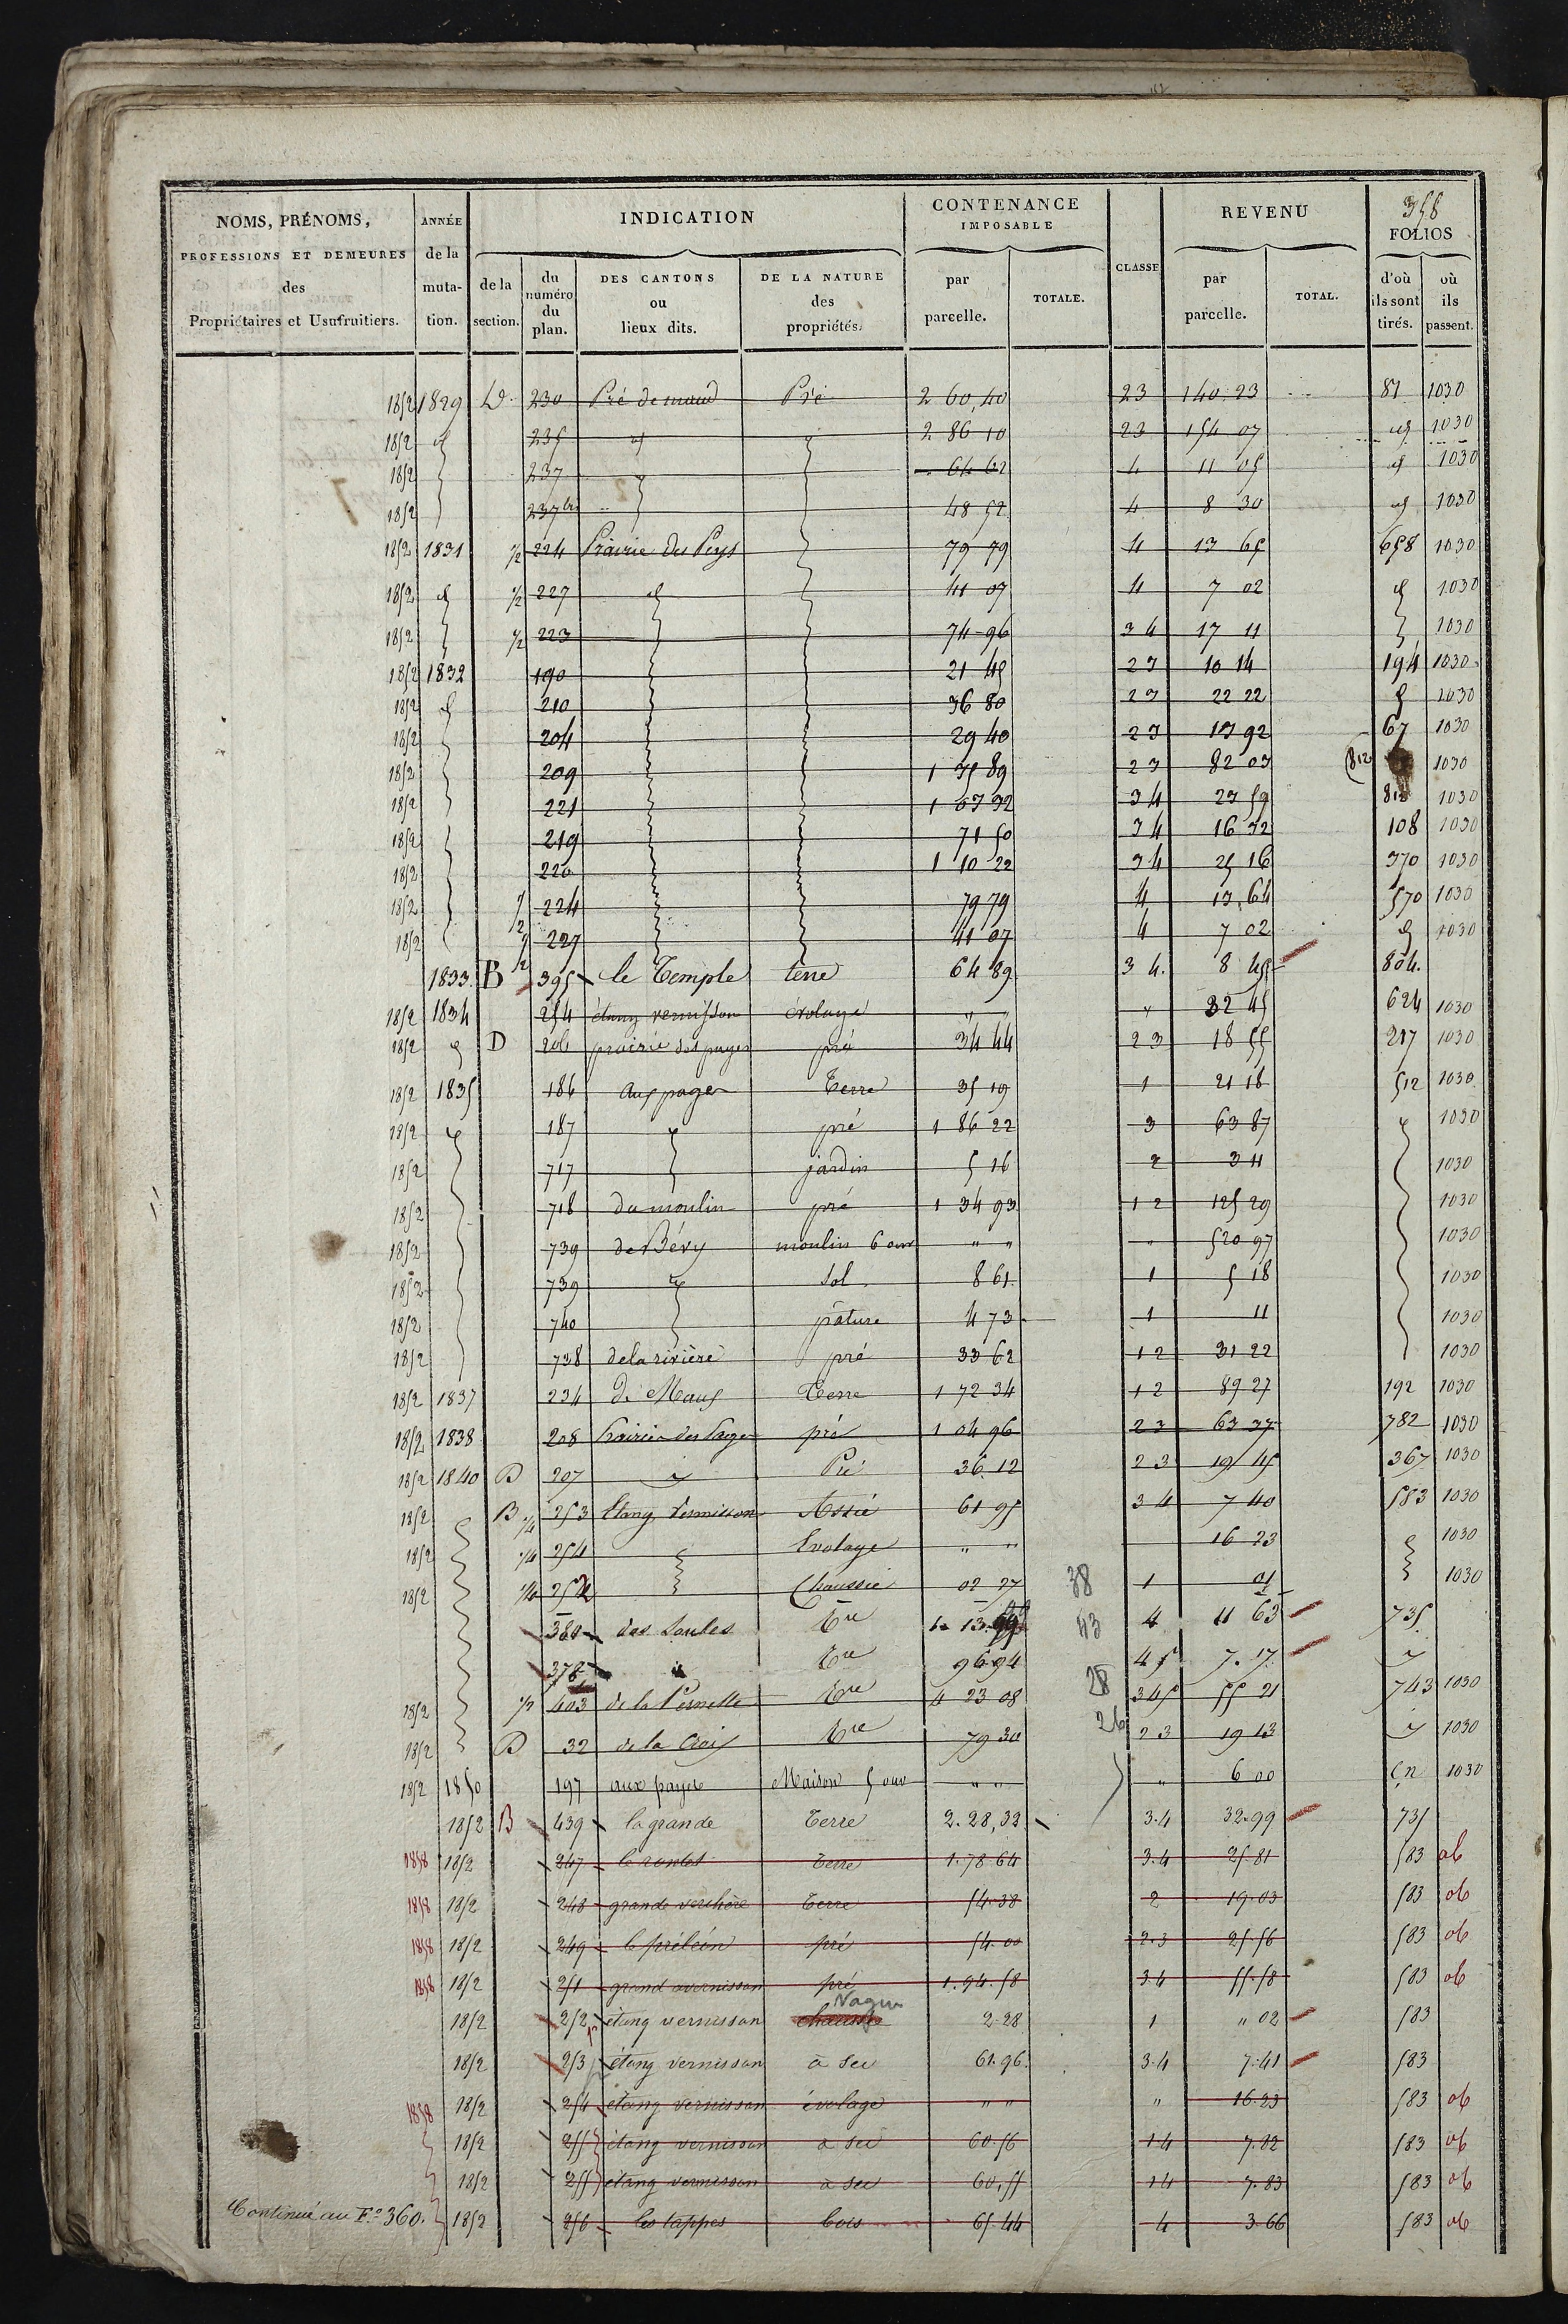 358
NOMS, PRÉNOMS, PROFESSIONS ET DEMEURES des Propriétaires et Usufruitiers.
ANNÉE de la mutation.
INDICATION
de la section.
du numéro du plan.
DES CANTONS ou lieux dits.
DE LA NATURE des propriétés.
CONTENANCE IMPOSABLE
par parcelle.
TOTALE.
CLASSE
REVENU
par parcelle.
TOTAL.
FOLIOS
d'où ils sont tirés.
où ils passent.
1852 1829 D 230 Pré de Pré 2 60,40 23 140.23 81 1030
1852 id 235 id 2 86 10 23 154 07 id 1030
1852 237 64 62 4 11 05 id 1030
1852 237 bis 48 52 4 8 30 id 1030
1852 1831 1/2 224 Prairie des 79 79 4 13 65 658 1030
1852 id 1/2 227 id 41 07 4 7 02 id 1030
1852 1/2 223 74 96 34 17 11 1030
1852 1832 190 21 45 23 10 14 194 1030
1852 id 210 36 80 23 22 22 id 1030
1852 204 29 40 23 13 92 67 1030
1852 209 1 35 89 23 82 03 (812 1030
1852 221 1 03 32 34 23 59 812 1030
1852 219 71 50 34 16 32 108 1030
1852 220 1 10 22 34 25 16 370 1030
1852 1/2 224 79 79 4 13,64 570 1030
1852 1/2 227 41 07 4 7 02 id 1030
1833 B 395 le Temple terre 64 89 34. 8 45 804.
1852 1834 254 étang vernisson évolage " " " 32 45 624 1030
1852 id D 206 prairie des pré 34 44 23 18 55 217 1030
1852 1835 186 aux pages Terre 35 19 1 21 18 512 1030
1852 id 187 id pré 1 86 22 3 63 87 id 1030
1852 717 jardin 5 16 2 3 11 1030
1852 718 du moulin pré 1 34 93 12 125 29 1030
1852 739 de Bévy moulin 6 ouv " " " 520 97 1030
1852 739 id sol 8 61 1 5 18 1030
1852 740 pâture 4 73 1 11 1030
1852 738 de la rivière pré 33 62 12 31 22 1030
1852 1837 234 de Terre 1 72 34 12 89 27 192 1030
1852 1838 208 Prairie des pré 1 04 96 23 63 37 782 1030
1852 1840 D 207 id Pré 36 12 23 19 45 367 1030
1852 B 1/4 253 Etang Vernisson 61 95 34 7 40 583 1030
1852 1/4 254 Evolage " " 16 23 1030
1852 1/4 252 Chaussée 02 27 38 1 01 1030
380 des Saules Tre 1. 13. 43 4 11 63 735
377 id Tre 96 94 45 7.17 id
1852 1/2 403 de la Tre 4 23 08 28 345 55 21 743 1030
1852 D 32 de la Croix Tre 79 30 26 23 19 13 id 1030
1852 1850 197 aux Maison 5 ouv " " " 6 00 Cn 1030
1852 B 439 la grande Terre 2.28,32 3.4 32.99 735
1858 1852 247 Terre 1.78.64 3.4 25.81 583 ob
1858 1852 248 grande verchère Terre 54.38 2 19.03 583 ob
1858 1852 249 pré 54.00 2.3 25.56 583 ob
1858 1852 251 grand avernisson pré 1.94.58 34 55.58 583 ob
1852 252 étang vernisson chaussée Vague 2.28 1 " 02 583
1852 253 étang vernisson à sec 61.96. 3.4 7.41 583
1858 1852 254 étang vernisson évolage " " " 16.23 583 ob
1852 255 étang vernisson à sec 60.56 14 7.82 583 ob
1852 255 étang vernisson à sec 60,55 14 7.83 583 ob
Continué au Fo. 360. 1852 256 les tappes bois 65.44 4 3.66 583 ob